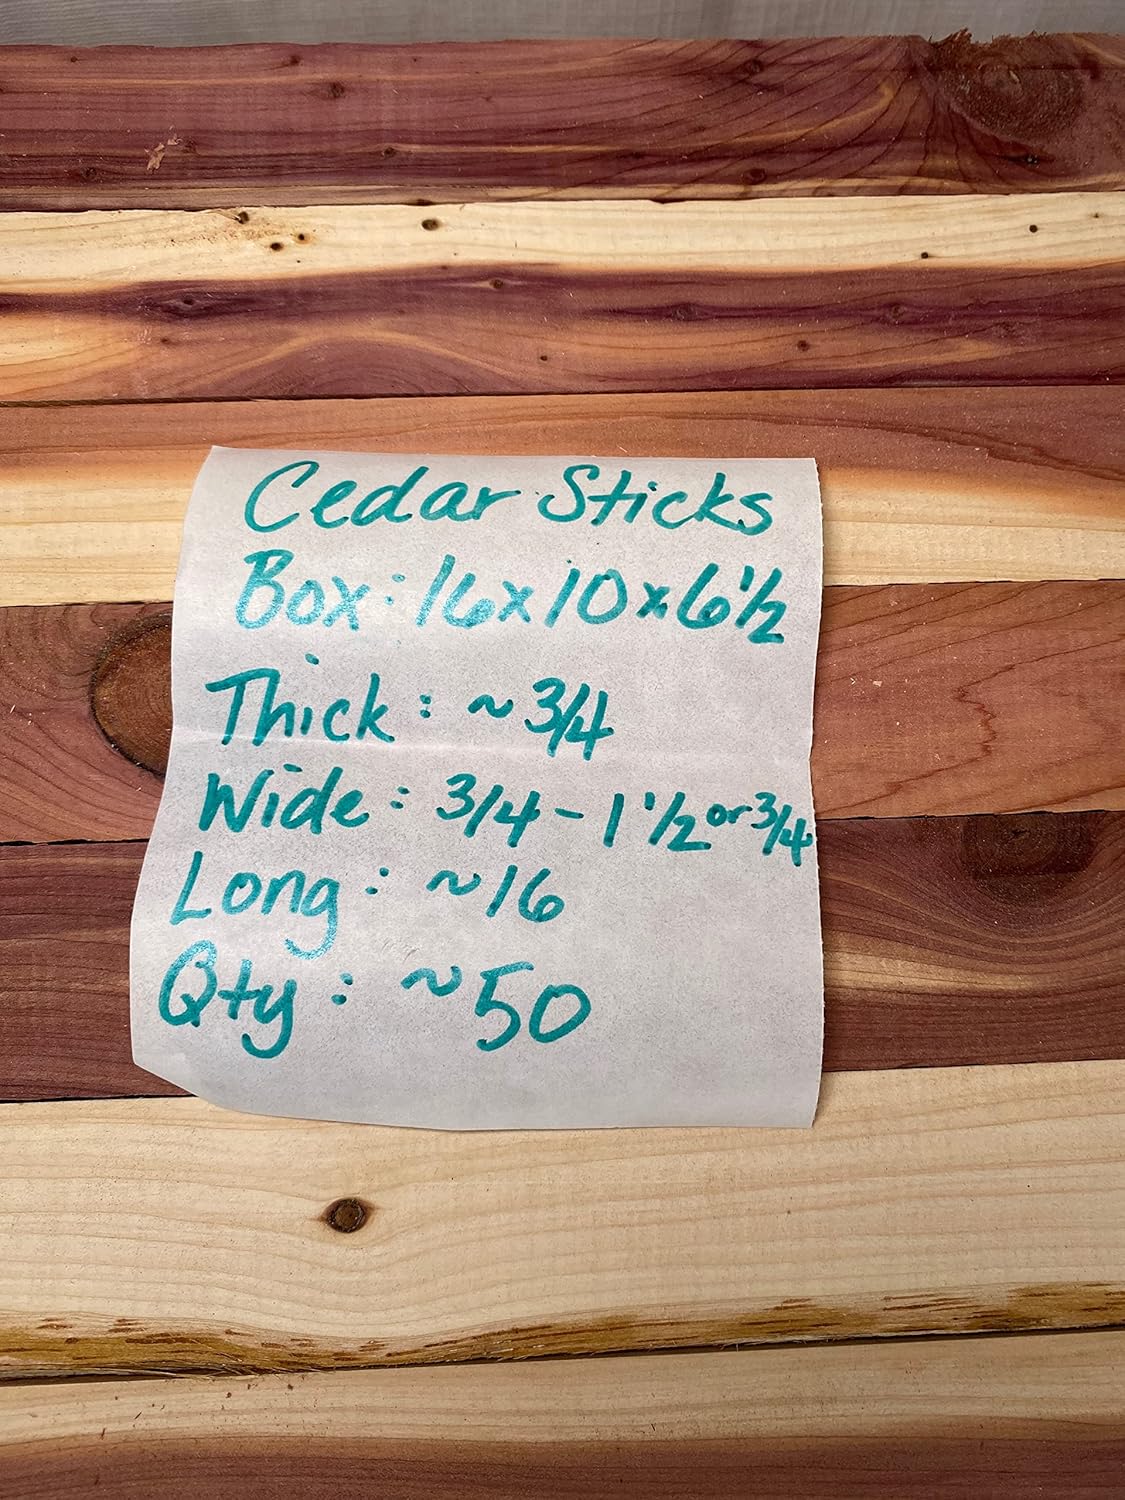 Cedar Sticks
Box: 16x10x6 1/2
Thick: ~3/4
Wide: 3/4 - 1 1/2 or 3/4
Long: ~16
Qty: ~50